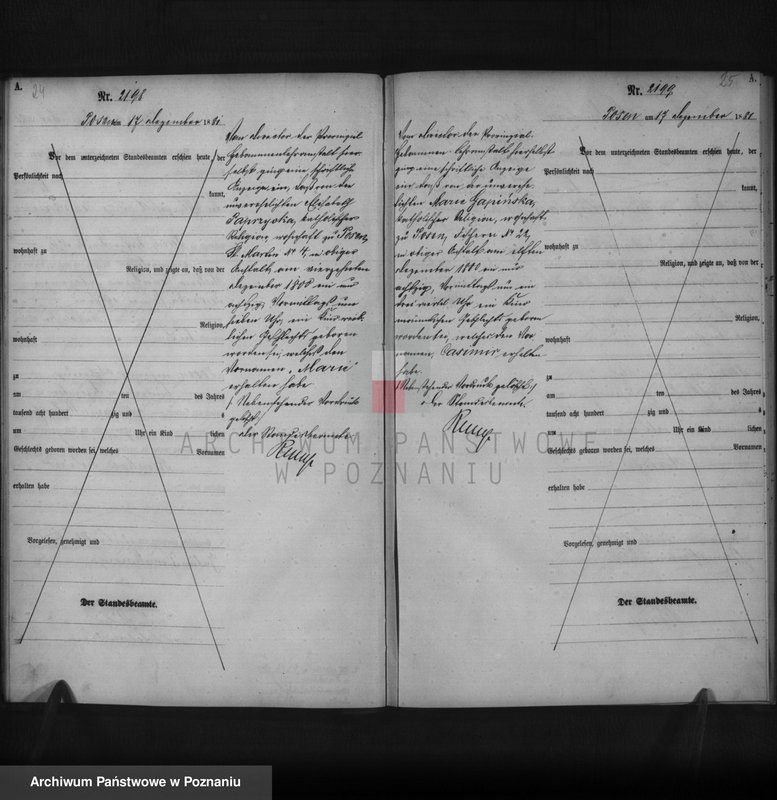 A.
24
Nr. 2198
Posen am 17 Dezember 1881
Vor dem unterzeichneten Standesbeamten erschien heute, der
Persönlichkeit nach
kannt,
wohnhaft zu
Religion, und zeigte an, daß von der
Religion,
wohnhaft
zu
am ten des Jahres
tausend acht hundert zig und
um Uhr ein Kind lichen
Geschlechts geboren worden sei, welches Vornamen
erhalten habe
Vorgelesen, genehmigt und
Der Standesbeamte.
Vom Director der Provinzial
Hebammenlehranstalt hier
selbst ging eine schriftliche
Anzeige ein, daß von der
unverehelichten Elisabeth
katholischer
Religion, wohnhaft zu Posen,
St. Martin No
in obiger
Anstalt am vierzehnten
Dezember ein und
achtzig, Vormittags um
sieben Uhr, ein Kind weib
lichen Geschlechts geboren
worden sei, welches den
Vornamen, Marie
erhalten habe
Nebenstehender Vordruck
gelöscht
Der Standesbeamte
A.
25
Nr. 2199
Posen am 17 Dezember 1881
Vor dem unterzeichneten Standesbeamten erschien heute, der
Persönlichkeit nach
kannt,
wohnhaft zu
Religion, und zeigte an, daß von der
Religion,
wohnhaft
zu
am ten des Jahres
tausend acht hundert zig und
um Uhr ein Kind lichen
Geschlechts geboren worden sei, welches Vornamen
erhalten habe
Vorgelesen, genehmigt und
Der Standesbeamte.
Vom Director der Provinzial
Hebammen Lehranstalt hierselbst
ging eine schriftliche Anzeige
ein daß von der unverehe
lichten Marie
katholischer Religion, wohnhaft
zu Posen,
in obiger Anstalt am
Dezember ein und
achtzig, Vormittags um ein
drei viertel Uhr ein Kind
männlichen Geschlechts geboren
worden sei, welches den Vor
namen, Casimir erhalten
habe
Nebenstehender Vordruck gelöscht
Der Standesbeamte.
ARCHIWUM PAŃSTWOWE
W POZNANIU
Archiwum Państwowe w Poznaniu